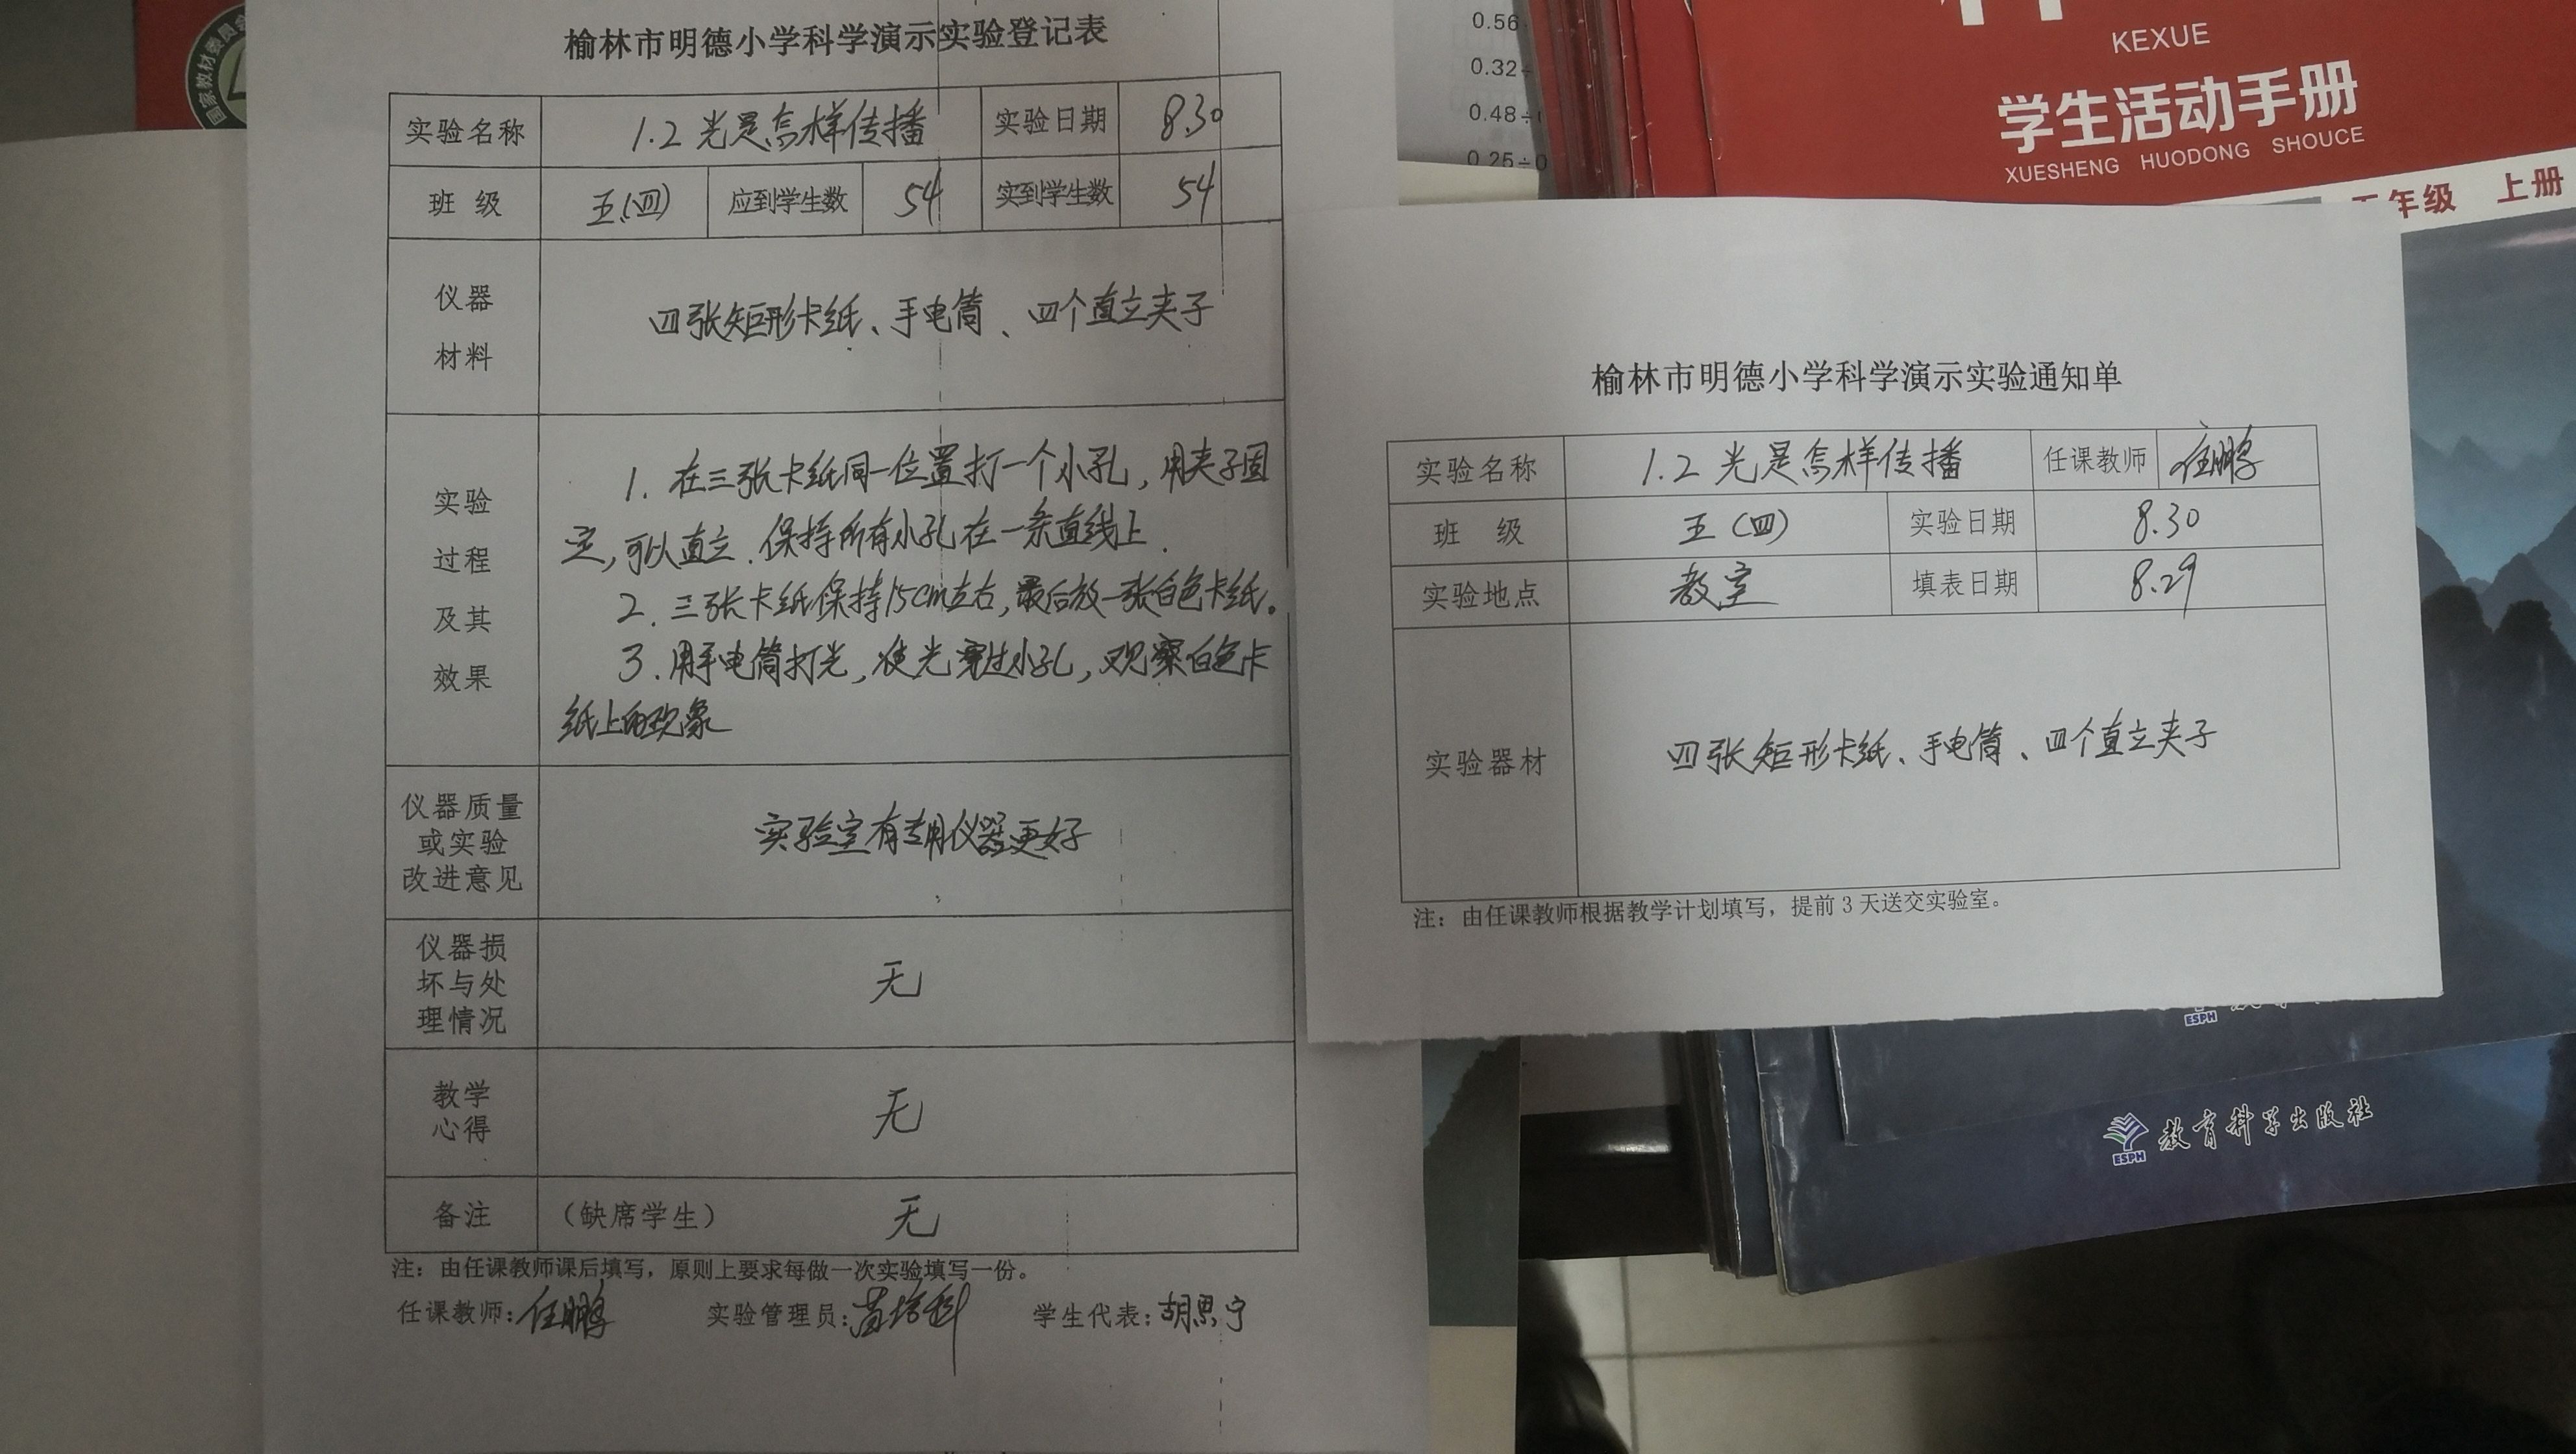 榆林市明德小学科学演示实验登记表
实验名称 1.2 光是怎样传播 实验日期 8.30
班 级 五(四) 应到学生数 54 实到学生数 54
仪器
材料
四张矩形卡纸、手电筒、四个直立夹子
实验
过程
及其
效果
1. 在三张卡纸同一位置打一个小孔,用夹子固
定,可以直立.保持所有小孔在一条直线上.
2. 三张卡纸保持15cm左右,最后放一张白色卡纸。
3. 用手电筒打光,使光穿过小孔,观察白色卡
纸上的现象
仪器质量
或实验
改进意见
实验室有专用仪器更好
仪器损
坏与处
理情况
无
教学
心得
无
备注 (缺席学生) 无
注:由任课教师课后填写,原则上要求每做一次实验填写一份。
任课教师:任鹏 实验管理员: 学生代表:胡思宁
榆林市明德小学科学演示实验通知单
实验名称 1.2 光是怎样传播 任课教师 任鹏
班 级 五(四) 实验日期 8.30
实验地点 教室 填表日期 8.29
实验器材 四张矩形卡纸、手电筒、四个直立夹子
注:由任课教师根据教学计划填写,提前 3 天送交实验室。
国家教材委员会
0.56
0.32÷
0.48÷
0.25÷0
KEXUE
学生活动手册
XUESHENG HUODONG SHOUCE
年级 上册
ESPH
ESPH 教育科学出版社